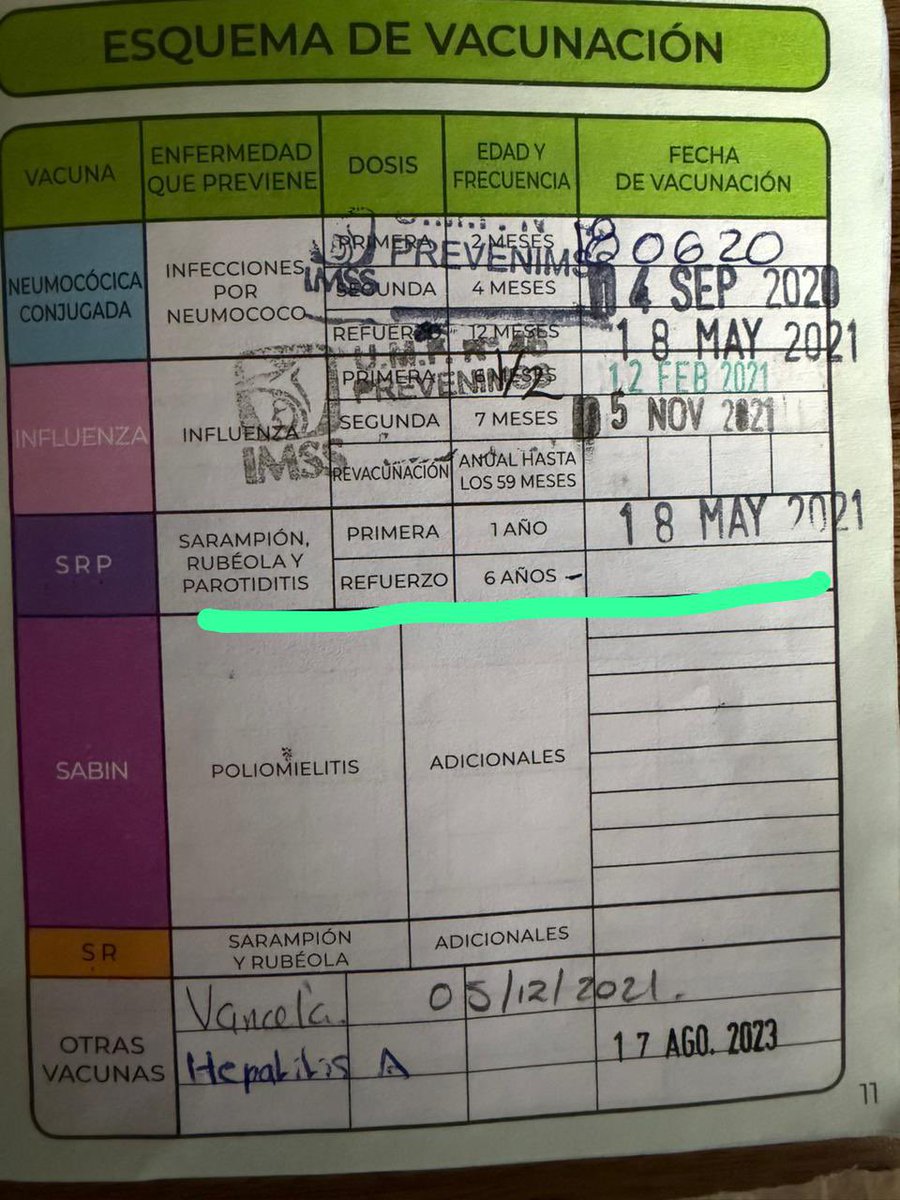 ESQUEMA DE VACUNACIÓN
VACUNA
ENFERMEDAD QUE PREVIENE
DOSIS
EDAD Y FRECUENCIA
FECHA DE VACUNACIÓN
NEUMOCÓCICA CONJUGADA
INFECCIONES POR NEUMOCOCO
PRIMERA 2 MESES
PREVENIMSS
IMSS
SEGUNDA 4 MESES 4 SEP 2020
REFUERZO 12 MESES 18 MAY 2021
INFLUENZA
INFLUENZA
U.M.F. Nº
PREVENIMSS
IMSS
PRIMERA 6 MESES 1/2 12 FEB 2021
SEGUNDA 7 MESES 5 NOV 2021
REVACUNACIÓN
ANUAL HASTA
LOS 59 MESES
SRP
SARAMPIÓN,
RUBÉOLA Y
PAROTIDITIS
PRIMERA 1 AÑO 18 MAY 2021
REFUERZO 6 AÑOS
SABIN
POLIOMIELITIS
ADICIONALES
SR
SARAMPIÓN
Y RUBÉOLA
ADICIONALES
OTRAS
VACUNAS
05/12/2021.
Hepatitis A 17 AGO. 2023
11